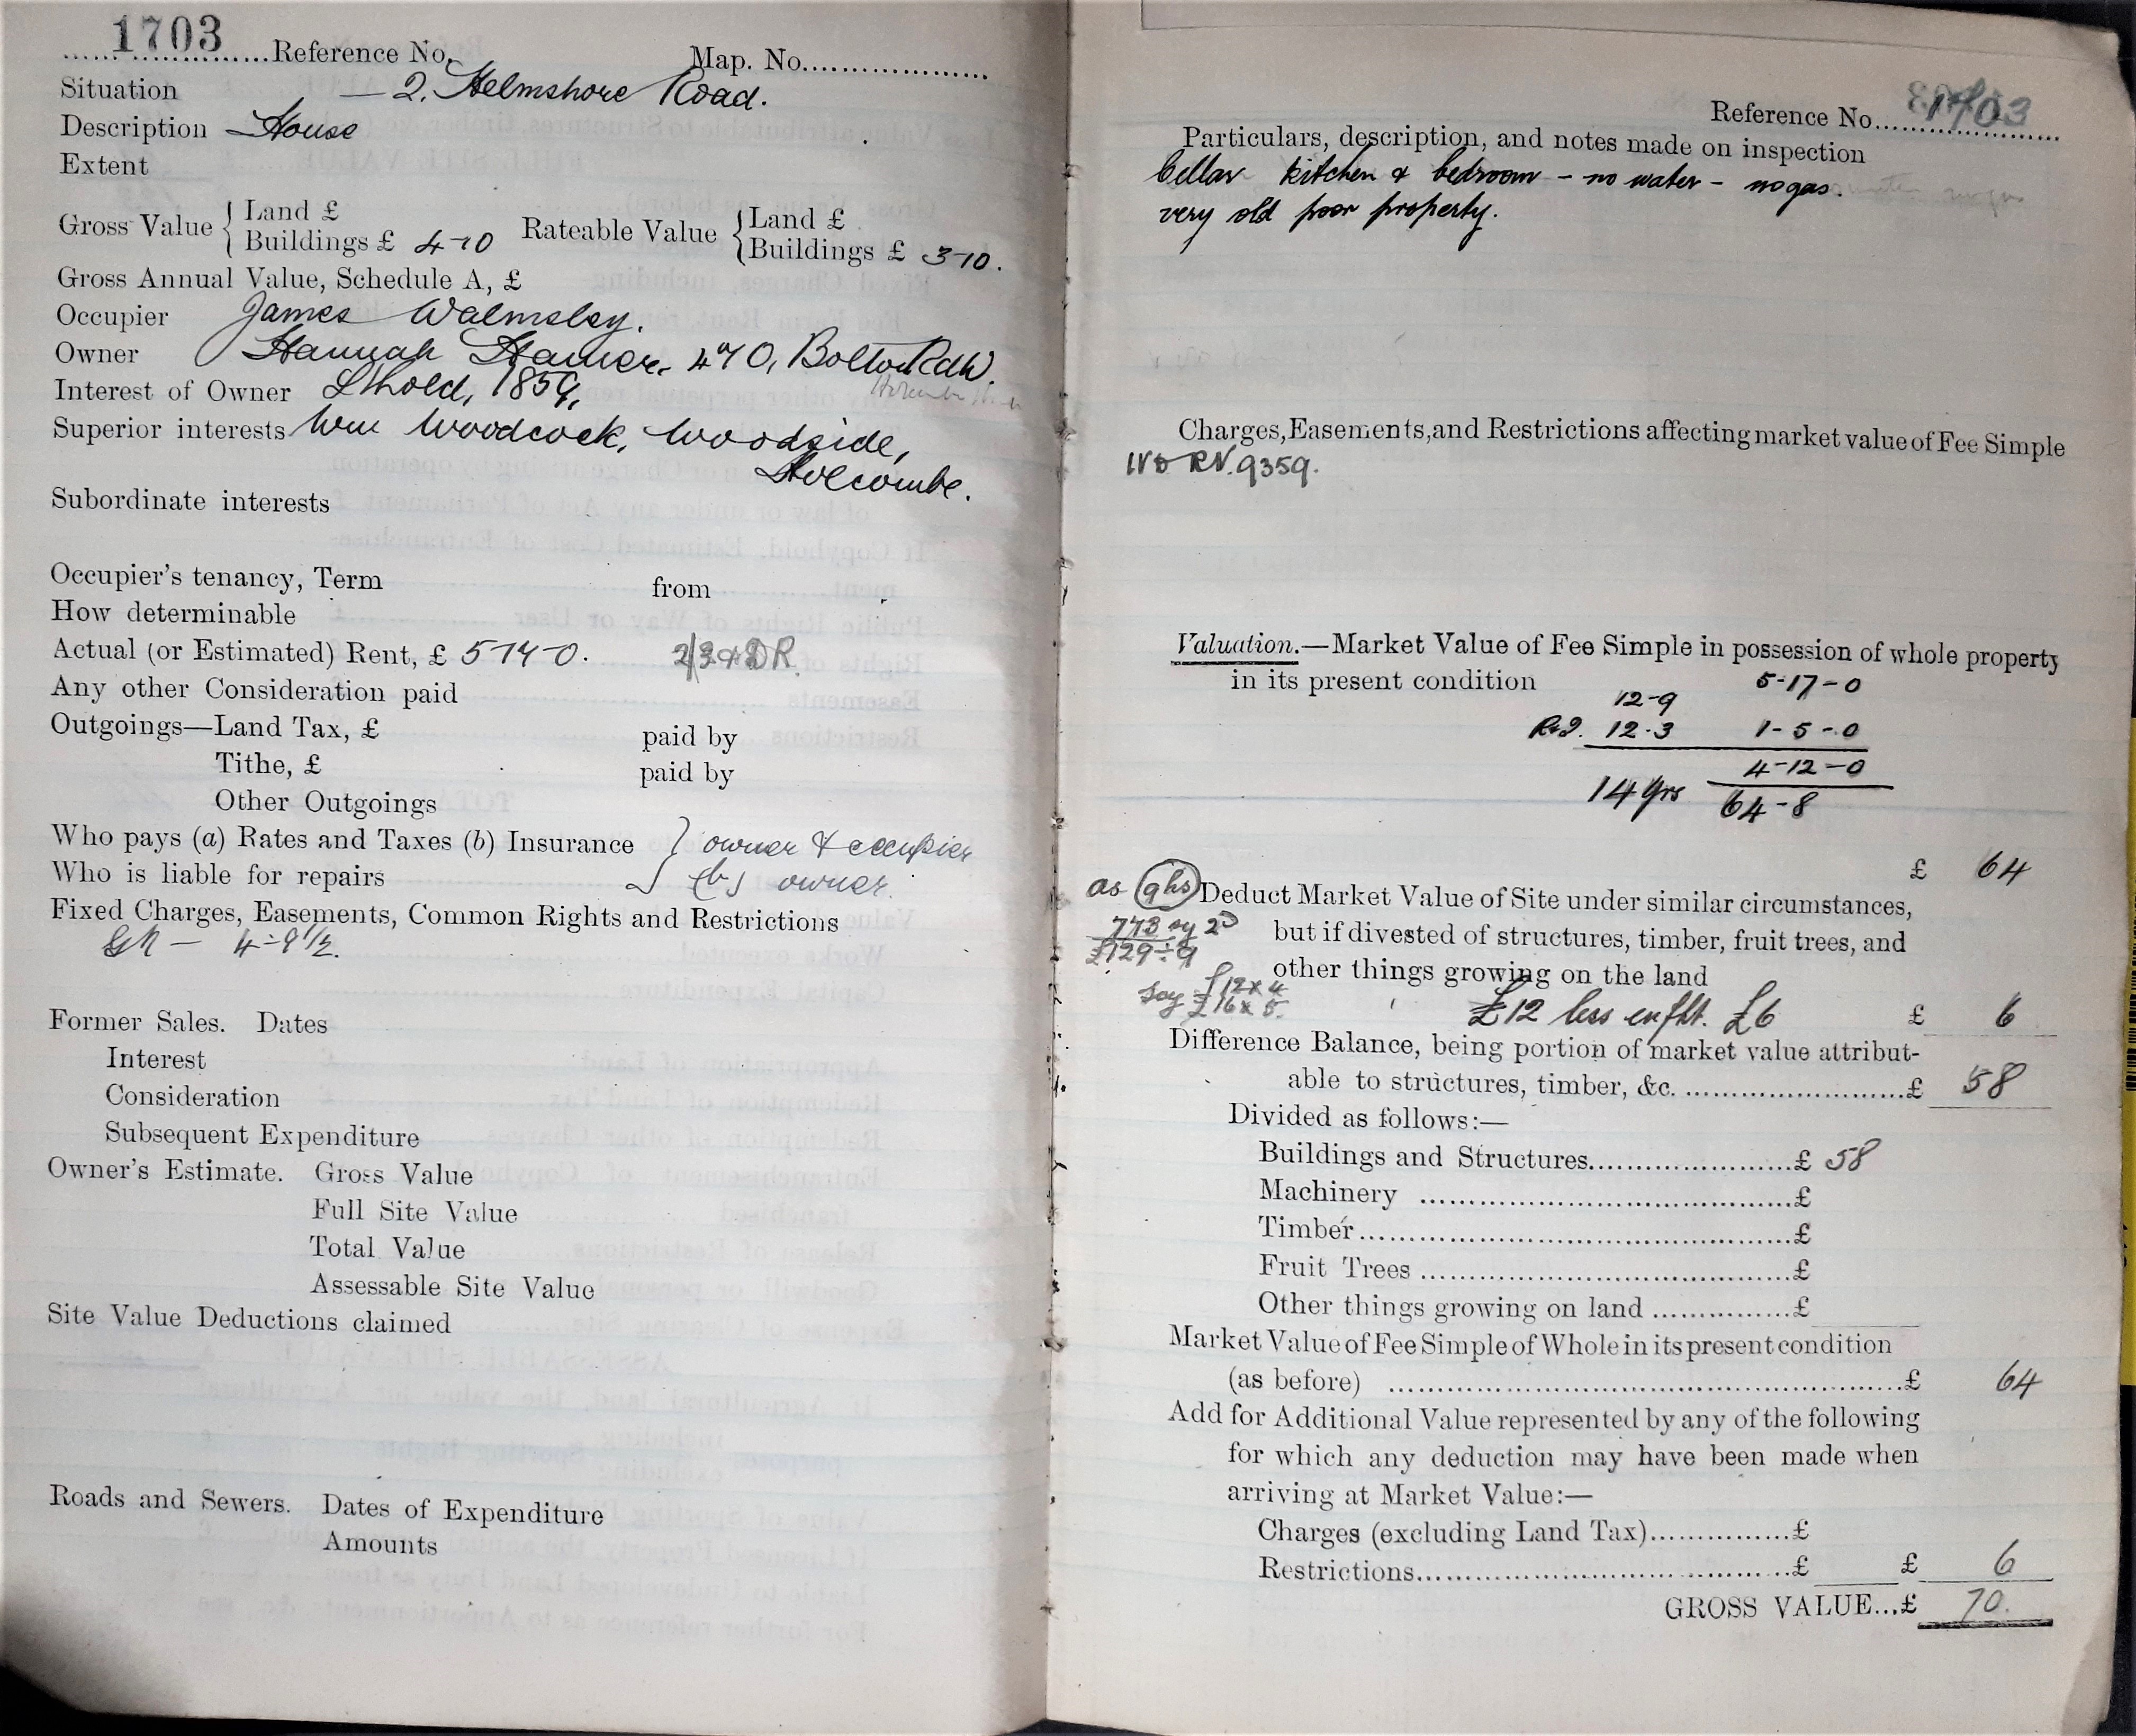 1703 Reference No. Map. No.
Situation — 2, Helmshore Road.
Description House
Extent
Gross Value { Land £
Buildings £ 4-10 Rateable Value { Land £
Buildings £ 3-10.
Gross Annual Value, Schedule A, £
Occupier James Walmsley.
Owner Hannah Hamer, 470, Bolton Rd W.
Interest of Owner Lhold, 1859,
Superior interests Wm Woodcock, Woodside,
Holcombe.
Subordinate interests
Occupier's tenancy, Term from
How determinable
Actual (or Estimated) Rent, £ 5-14-0. 2/3 & DR
Any other Consideration paid
Outgoings—Land Tax, £ paid by
Tithe, £ paid by
Other Outgoings
Who pays (a) Rates and Taxes (b) Insurance } owner & occupier
Who is liable for repairs (b) owner.
Fixed Charges, Easements, Common Rights and Restrictions
GR — 4-9½.
Former Sales. Dates
Interest
Consideration
Subsequent Expenditure
Owner's Estimate. Gross Value
Full Site Value
Total Value
Assessable Site Value
Site Value Deductions claimed
Roads and Sewers. Dates of Expenditure
Amounts
Reference No. 1703
Particulars, description, and notes made on inspection
Cellar kitchen & bedroom - no water - no gas.
very old poor property.
Charges, Easements, and Restrictions affecting market value of Fee Simple
RV. 9359.
Valuation.—Market Value of Fee Simple in possession of whole property
in its present condition 5-17-0
12-9
12-3 1-5-0
4-12-0
14 yrs 64-8
£ 64
as 9 hs Deduct Market Value of Site under similar circumstances,
but if divested of structures, timber, fruit trees, and
773 sy 2D
£129÷9
other things growing on the land
say £12 x 4
£16 x 5.
£12 less enfht. £6 £ 6
Difference Balance, being portion of market value attribut-
able to structures, timber, &c. £ 58
Divided as follows:—
Buildings and Structures £ 58
Machinery £
Timber £
Fruit Trees £
Other things growing on land £
Market Value of Fee Simple of Whole in its present condition
(as before) £ 64
Add for Additional Value represented by any of the following
for which any deduction may have been made when
arriving at Market Value:—
Charges (excluding Land Tax) £
Restrictions £ £ 6
GROSS VALUE...£ 70.